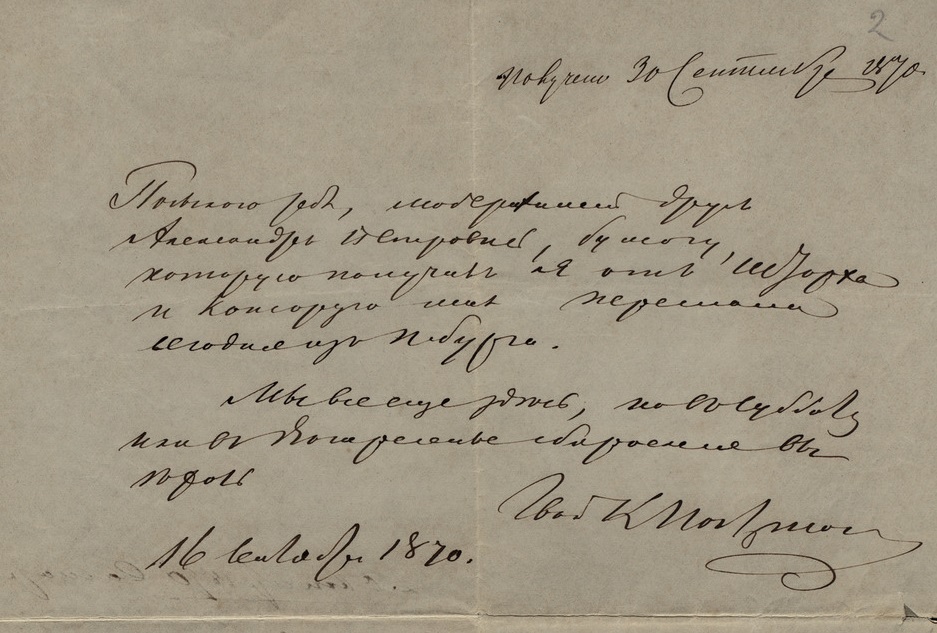 2
Получено 30 Сентября 1870.
Посылаю тебѣ, любезнѣйшій другъ
Александръ Петровичъ, бумагу,
которую получилъ я отъ
и которую мнѣ переслали
сегодня изъ Пбурга.
Мы все еще здѣсь, но въ Субботу
или въ Воскресенье сбираемся въ
Твой К
16 Сентября 1870.